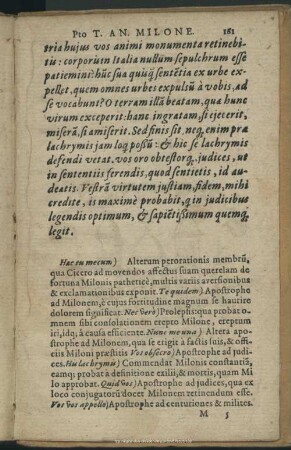 Pro T. AN. MILONE. 181
tria hujus vos animi monumenta retinebi-
tis: corporũ in Italia nullũm sepulchrum esse
patiemini: hũc sua quiq́; sentẽtia ex urbe ex-
pellet, quem omnes urbes expulsũ à vobis, ad
se vocabunt? O terram illã beatam, qua hunc
virum exceperit: hanc ingratam, si ejecerit,
miserã, si amiserit. Sed finis sit. neq; enim præ
lachrymis jam loq̃ possũ: & hic se lachrymis
defendi vetat. vos oro obtestorq́;, judices, ut
in sententiis ferendis, quod sentietis, id au-
deatis. Vestrã virtutem justiam, fidem, mihi
credite, is maximè probabit, q̃ in judicibus
legendis optimum, & sapiẽtissimum quemq;
legit.
Hæc eu mecum) Alterum perorationis membrũ,
qua Cicero ad movendos affectus suam querelam de
fortuna Milonis patheticè, multis variis aversionibus
& exclamationibus exponit. Te quidem) Apostrophe
ad Milonem, è cujus fortitudine magnum se haurire
dolorem significat. Nec verò) Prolepsis: qua probat o-
mnem sibi consolationem erepto Milone, ereptum
iri, idq; à causa efficiente. Nunc me una) Altera apo-
strophe ad Milonem, qua se erigit à factis suis, & offi-
ciis Miloni præstitis Vos obsecro) Apostrophe ad judi-
ces. Hui lachrymis) Commendat Milonis constantiã,
eamq; probat à definitione exilii, & mortis, quam Mi
lo approbat. Quid vos) Apostrophe ad judices, qua ex
loco conjugatorũ docet Milonem retinendum esse.
Vos vos appello) Apostrophe ad centuriones & milites.
M 5